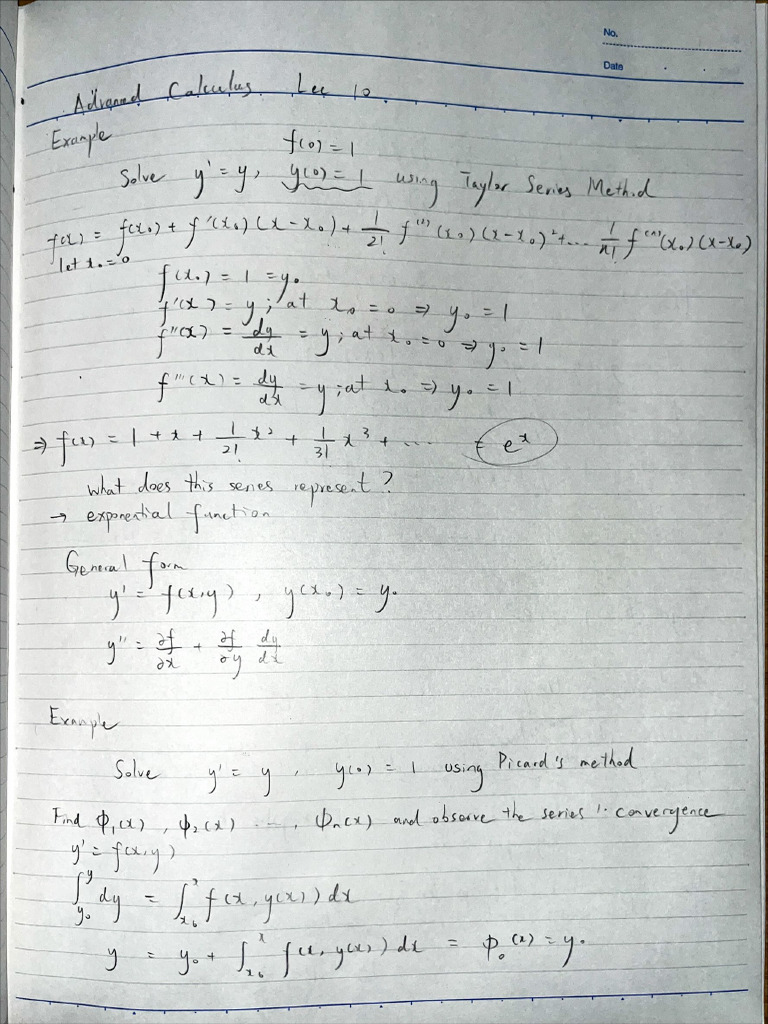 No.
Date
Advanced Calculus Lec 10
Example
f(0) = 1
Solve y' = y, y(0) = 1 using Taylor Series Method
f(x) = f(x₀) + f'(x₀)(x-x₀) + 1/2! f⁽²⁾(x₀)(x-x₀)² + ... 1/n! f⁽ⁿ⁾(x₀)(x-x₀)
let x₀ = 0
f(x₀) = 1 = y₀
f'(x) = y ; at x₀ = 0 ⇒ y₀ = 1
f''(x) = dy/dx = y ; at x₀ = 0 ⇒ y₀ = 1
f'''(x) = dy/dx = y ; at x₀ ⇒ y₀ = 1
⇒ f(x) = 1 + x + 1/2! x² + 1/3! x³ + .... = eˣ
What does this series represent?
→ exponential function
General form
y' = f(x,y) , y(x₀) = y₀
y'' = ∂f/∂x + ∂f/∂y dy/dx
Example
Solve y' = y , y(0) = 1 using Picard's method
Find φ₁(x) , φ₂(x) ...., φₙ(x) and observe the series' convergence
y' = f(x,y)
∫_{y₀}^{y} dy = ∫_{x₀}^{x} f(x, y(x)) dx
y = y₀ + ∫_{x₀}^{x} f(x, y(x)) dx = φ₀(x) = y₀